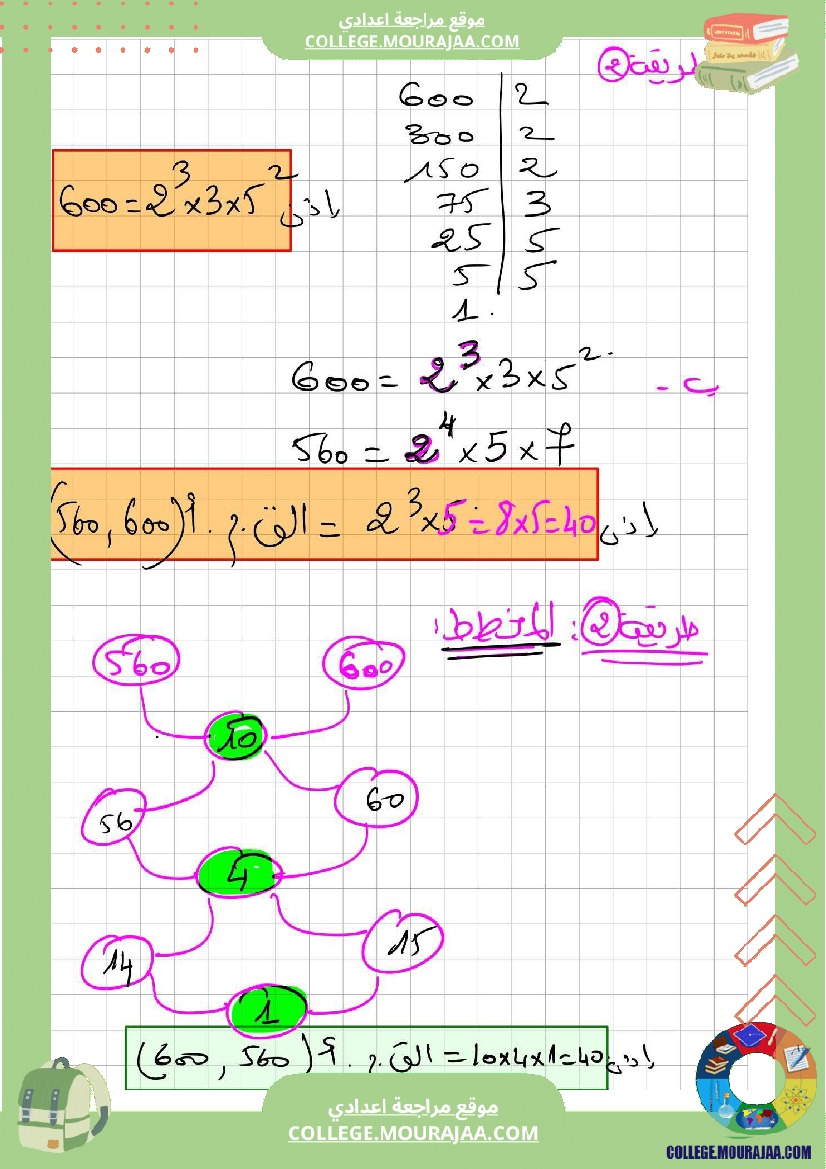 موقع مراجعة اعدادي
COLLEGE.MOURAJAA.COM
طريقة 2
600 | 2
300 | 2
150 | 2
75 | 3
25 | 5
5 | 5
1
اذن 600 = 2³ × 3 × 5²
ب - 600 = 2³ × 3 × 5²
560 = 2⁴ × 5 × 7
اذن 2³ × 5 = 8 × 5 = 40 = الق.م.أ (560 , 600)
طريقة 2 : المخطط :
560 600
10
56 60
4
14 15
1
اذن 10 × 4 × 1 = 40 = الق.م.أ (600 , 560)
موقع مراجعة اعدادي
COLLEGE.MOURAJAA.COM
COLLEGE.MOURAJAA.COM